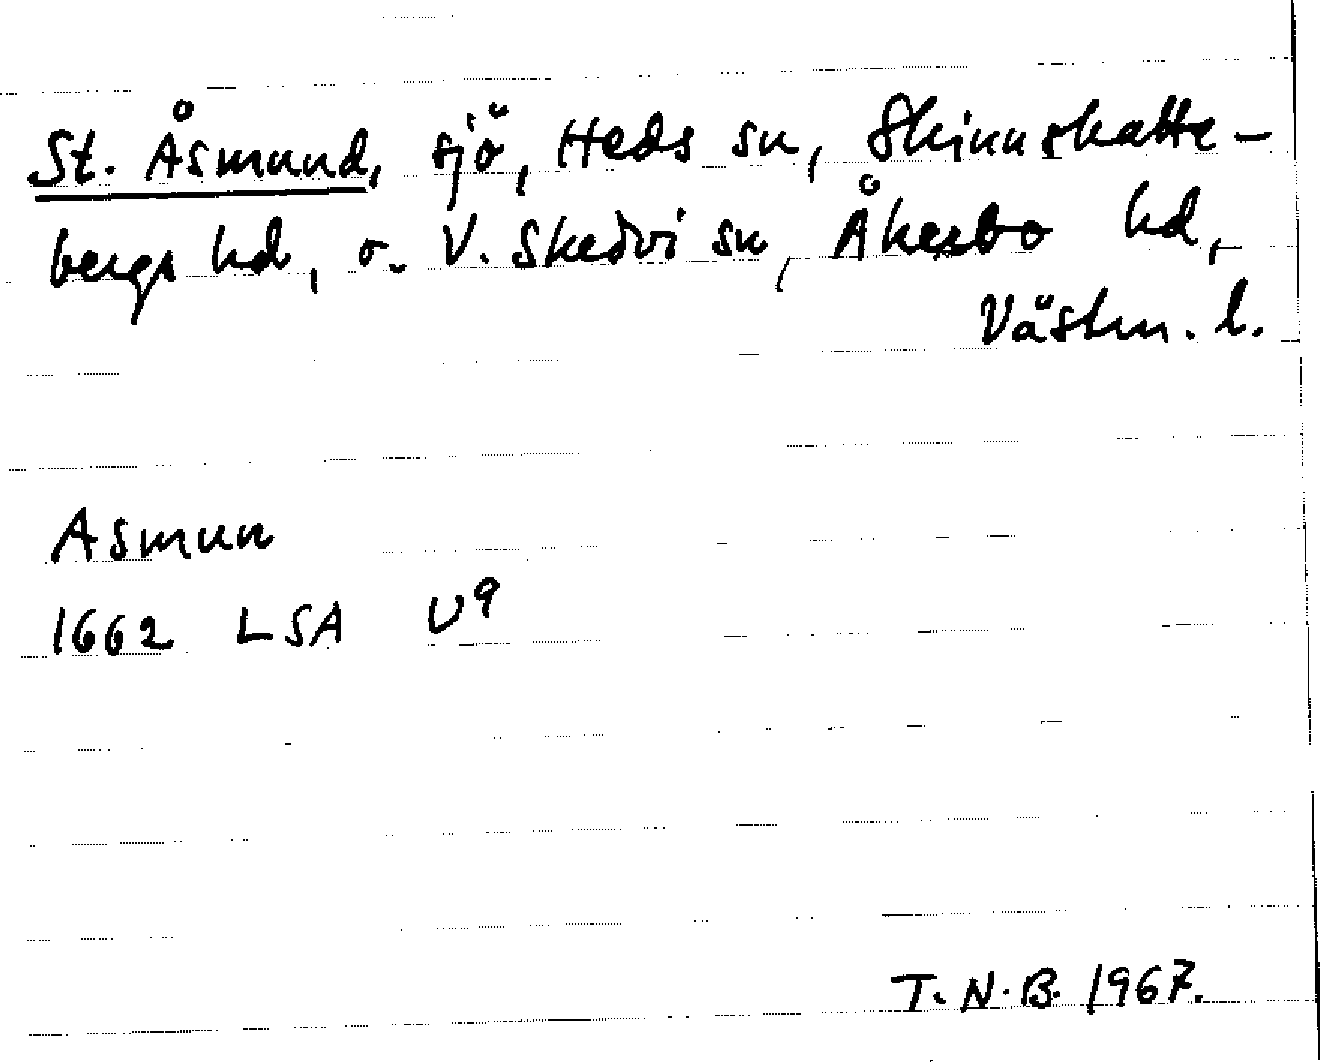 St. Åsmund, sjö, Heds sn, Skinnskatte-
bergs hd, o. V. Skedvi sn, Åkerbo hd,
Västm. l.
Asmun
1662 LSA U⁹
T. N. B. 1967.